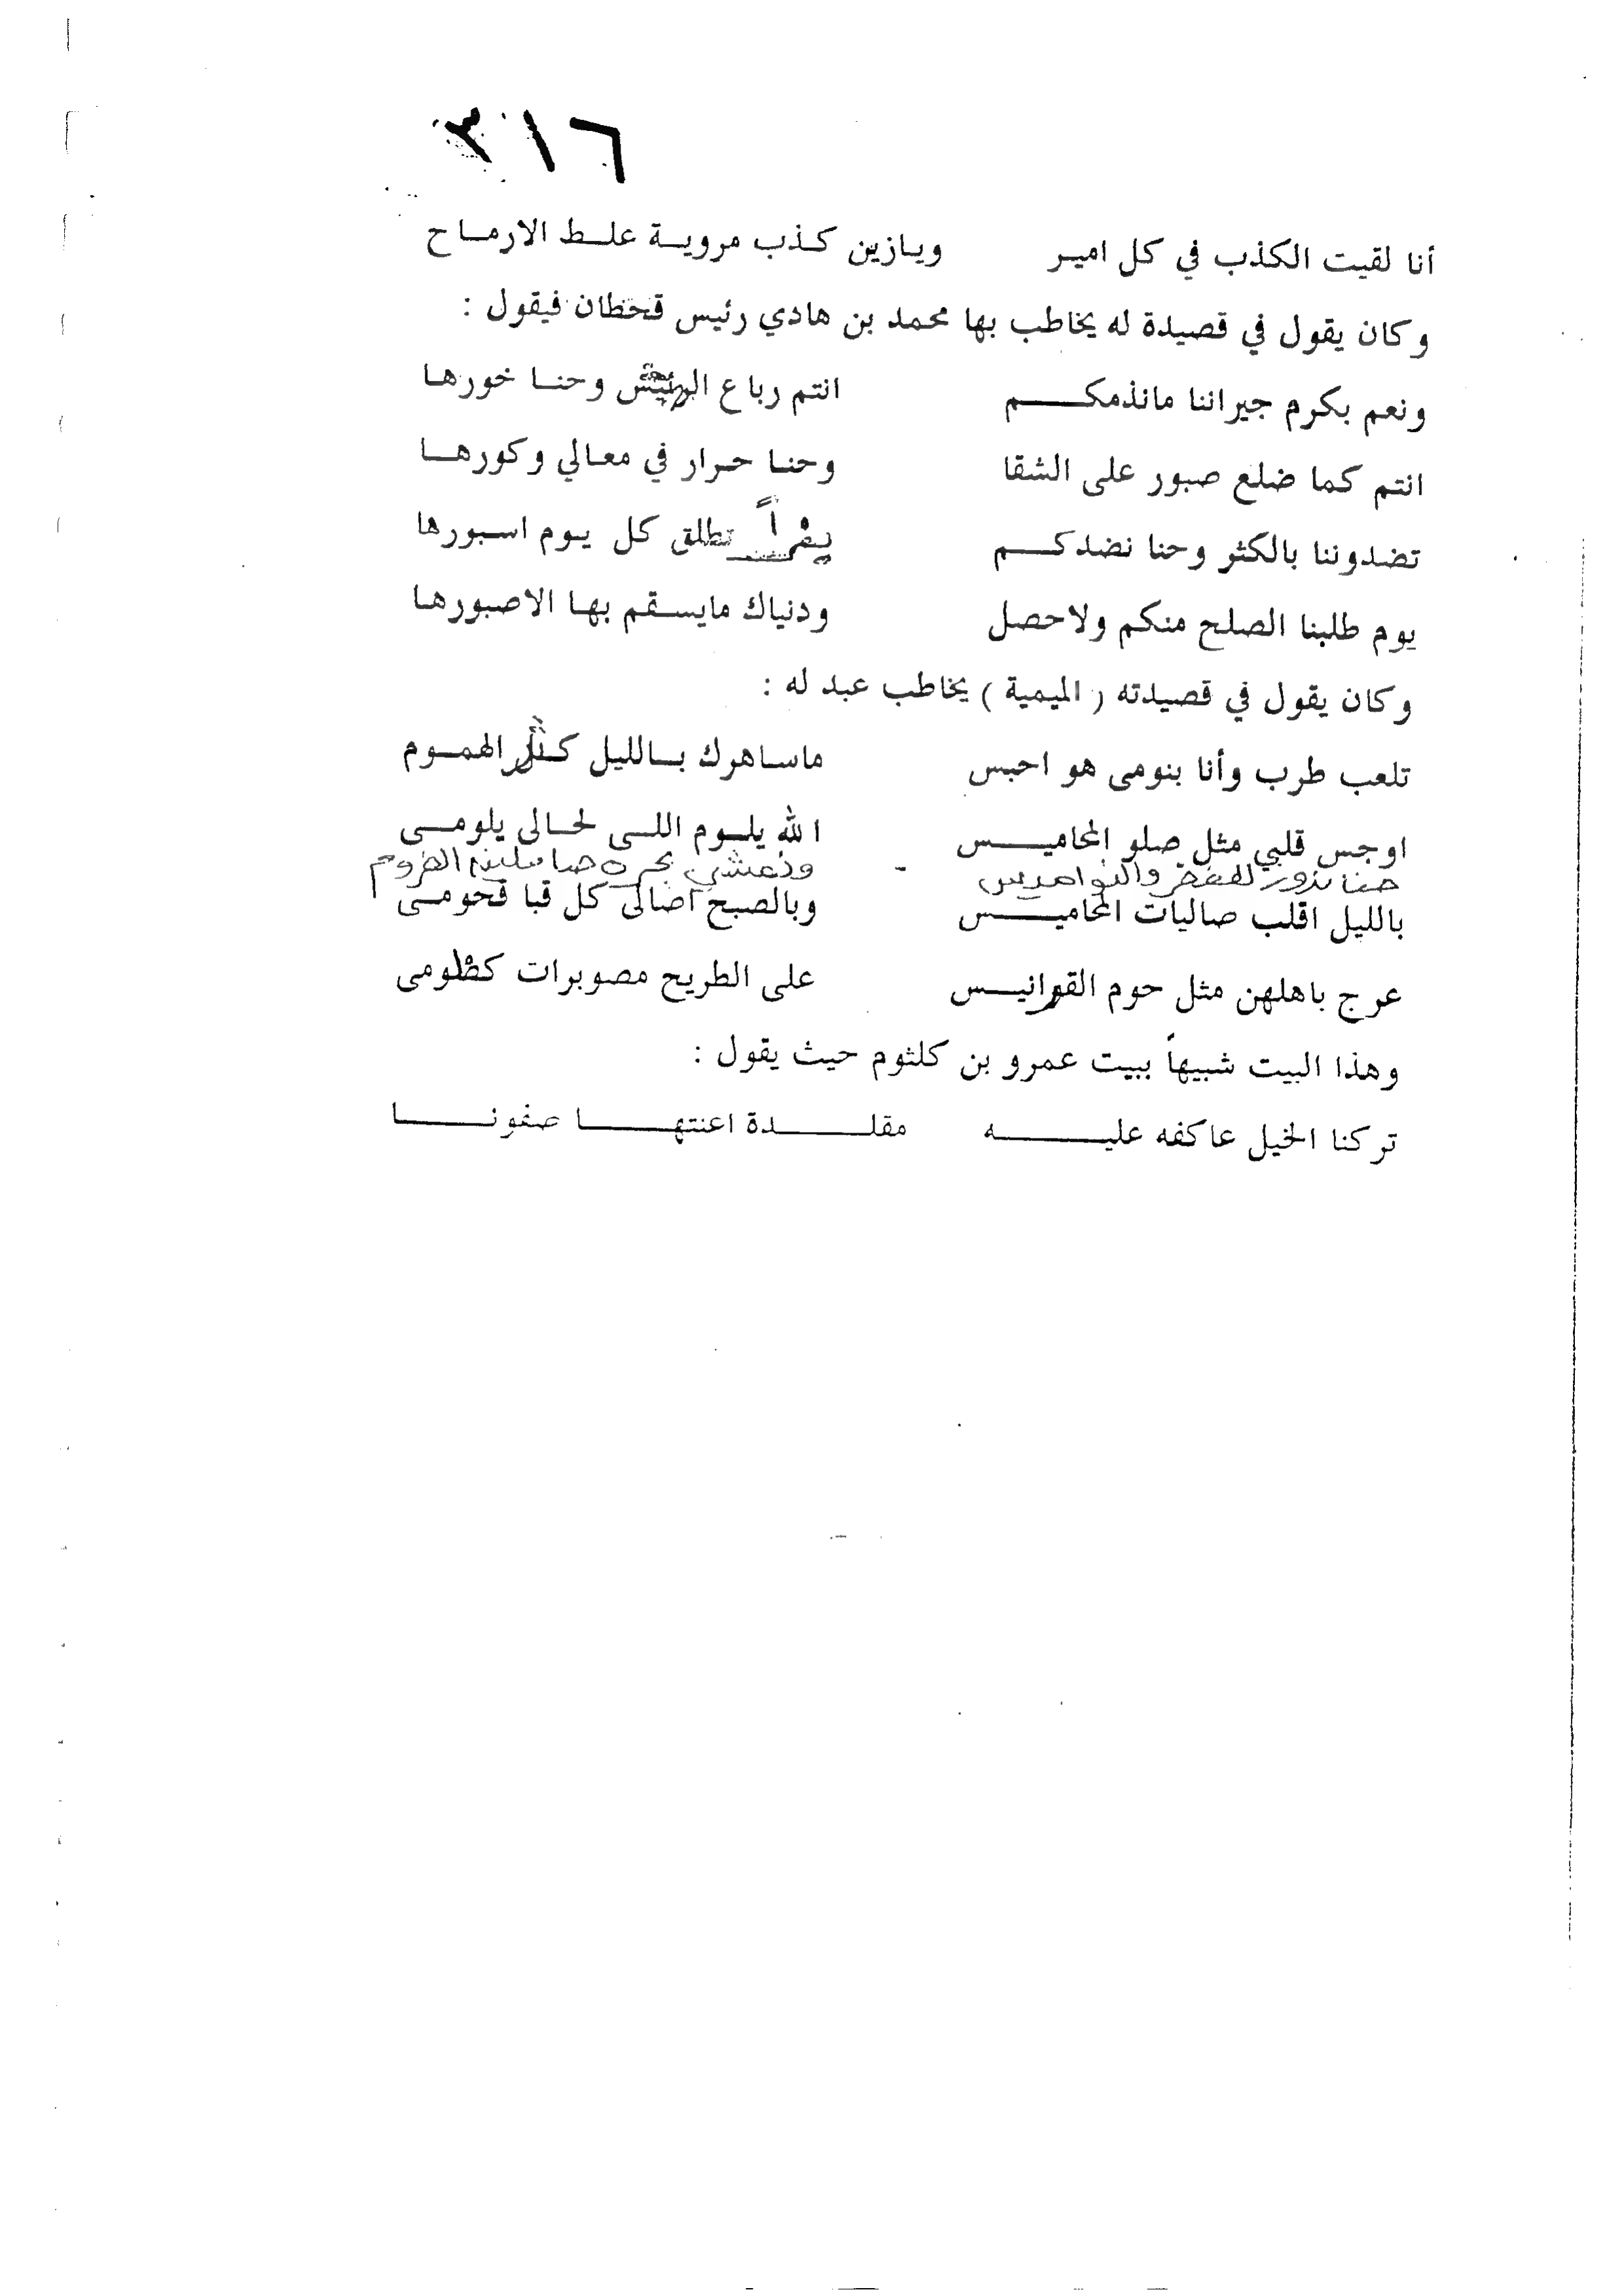 ٣١٦
أنا لقيت الكذب في كل امير ويازين كذب مروية علط الارماح
وكان يقول في قصيدة له يخاطب بها محمد بن هادي رئيس قحطان فيقول :
ونعم بكرم جيراننا مانذمكم انتم رباع وحنا خورها
انتم كما ضلع صبور على الشقا وحنا حرار في معالي وكورها
تضدوننا بالكثر وحنا نضدكم تطلق كل يوم اسبورها
يوم طلبنا الصلح منكم ولاحصل ودنياك مايسقم بها الاصبورها
وكان يقول في قصيدته ( الميمية ) يخاطب عبد له :
تلعب طرب وأنا بنومى هو احبس ماساهرك بالليل كثر الهموم
اوجس قلبي مثل صلو المحاميس الله يلوم اللى لحالى يلومى
حنا ندور
بالليل اقلب صاليات المحاميس وبالصبح اصالى كل قبا قحومى
عرج باهلهن مثل حوم القرانيس على الطريح مصوبرات كظومى
وهذا البيت شبيهاً ببيت عمرو بن كلثوم حيث يقول :
تركنا الخيل عاكفه عليه مقلدة اعنتها صفونا